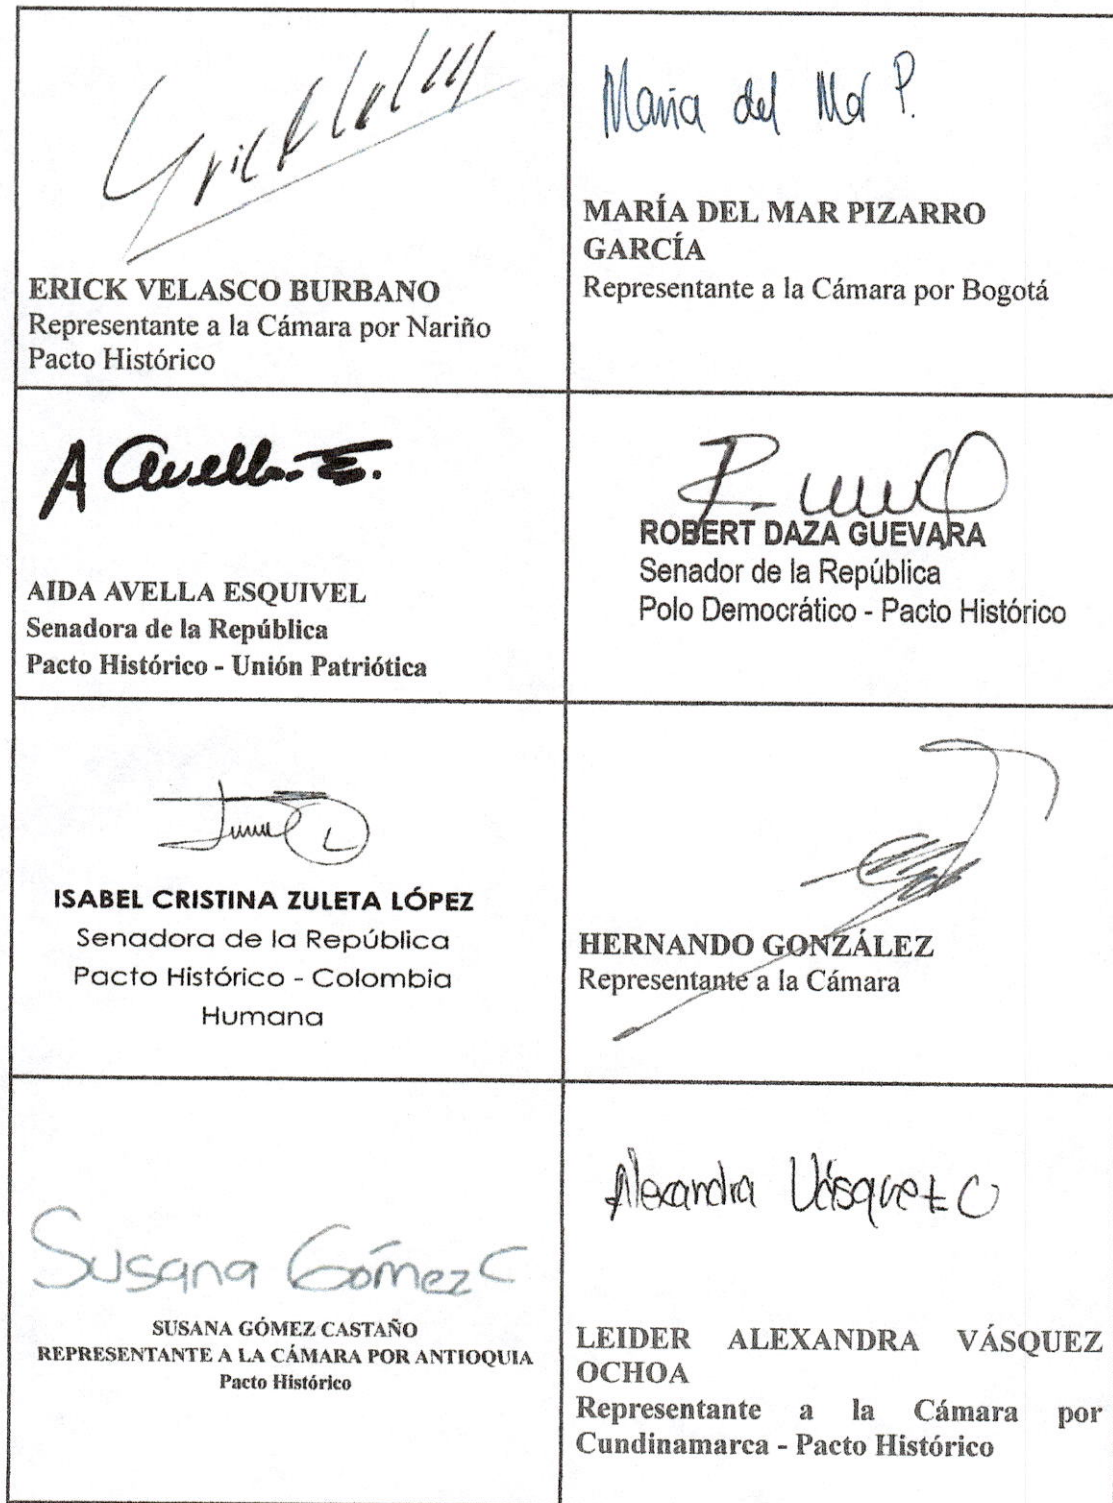 Erick Velasco
ERICK VELASCO BURBANO
Representante a la Cámara por Nariño
Pacto Histórico
María del Mar P.
MARÍA DEL MAR PIZARRO
GARCÍA
Representante a la Cámara por Bogotá
A Avella E.
AIDA AVELLA ESQUIVEL
Senadora de la República
Pacto Histórico - Unión Patriótica
ROBERT DAZA GUEVARA
Senador de la República
Polo Democrático - Pacto Histórico
ISABEL CRISTINA ZULETA LÓPEZ
Senadora de la República
Pacto Histórico - Colombia
Humana
HERNANDO GONZÁLEZ
Representante a la Cámara
Susana Gómez C
SUSANA GÓMEZ CASTAÑO
REPRESENTANTE A LA CÁMARA POR ANTIOQUIA
Pacto Histórico
Alexandra Vásquez O
LEIDER ALEXANDRA VÁSQUEZ
OCHOA
Representante a la Cámara por
Cundinamarca - Pacto Histórico